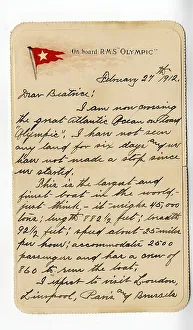 On board R.M.S. "OLYMPIC"
February 27th 1912.
Dear Beatrice:
I am now crossing
the great Atlantic Ocean on Board
"Olympic". I have not seen
any land for six days and
have not made a stop since
we started.
This is the largest and
finest boat in the world—
just think, — it weighs 45,000
tons; length 882½ ft.; breadth
92½ feet; speed about 25 miles
per hour; accommodate 2500
passengers and has a crew of
860 to run the boat.
I expect to visit London,
Liverpool, Paris and Brussels